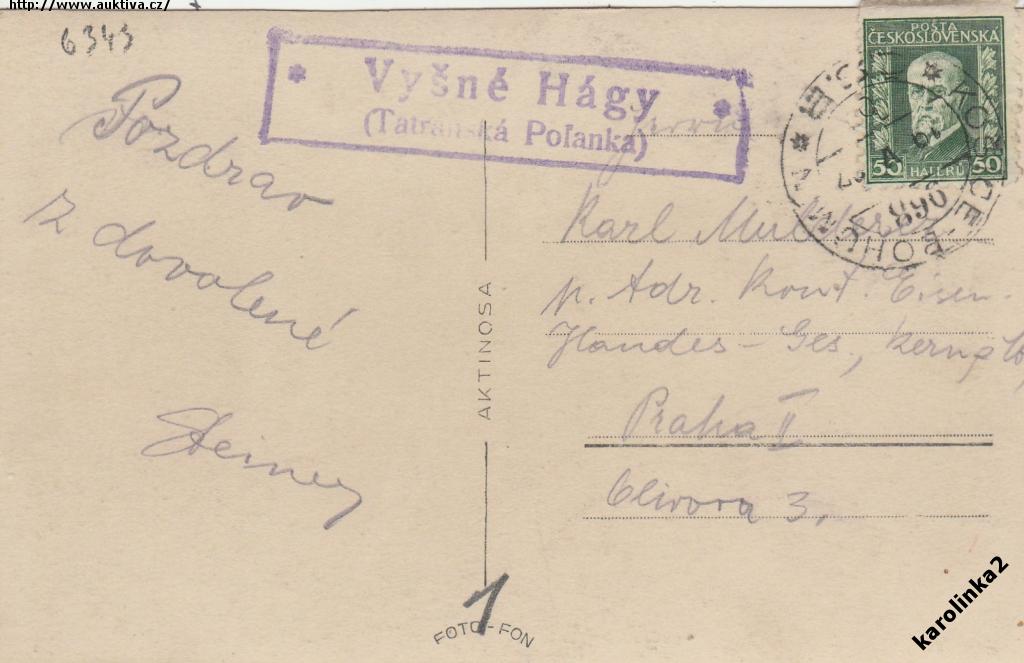 http://www.auktiva.cz/
6343
* Vyšné Hágy *
(Tatranská Poľanka)
POŠTA
ČESKOSLOVENSKA
50 HALÉŘŮ 50
KOŠICE - BOHUMÍN
890
Pozdrav
z dovolené
Steiner
Karl
p. Adr. Kont. Eisen-
Handes-Ges,
Praha II
Olivova 3,
AKTINOSA
1
FOTO-FON
karolinka2